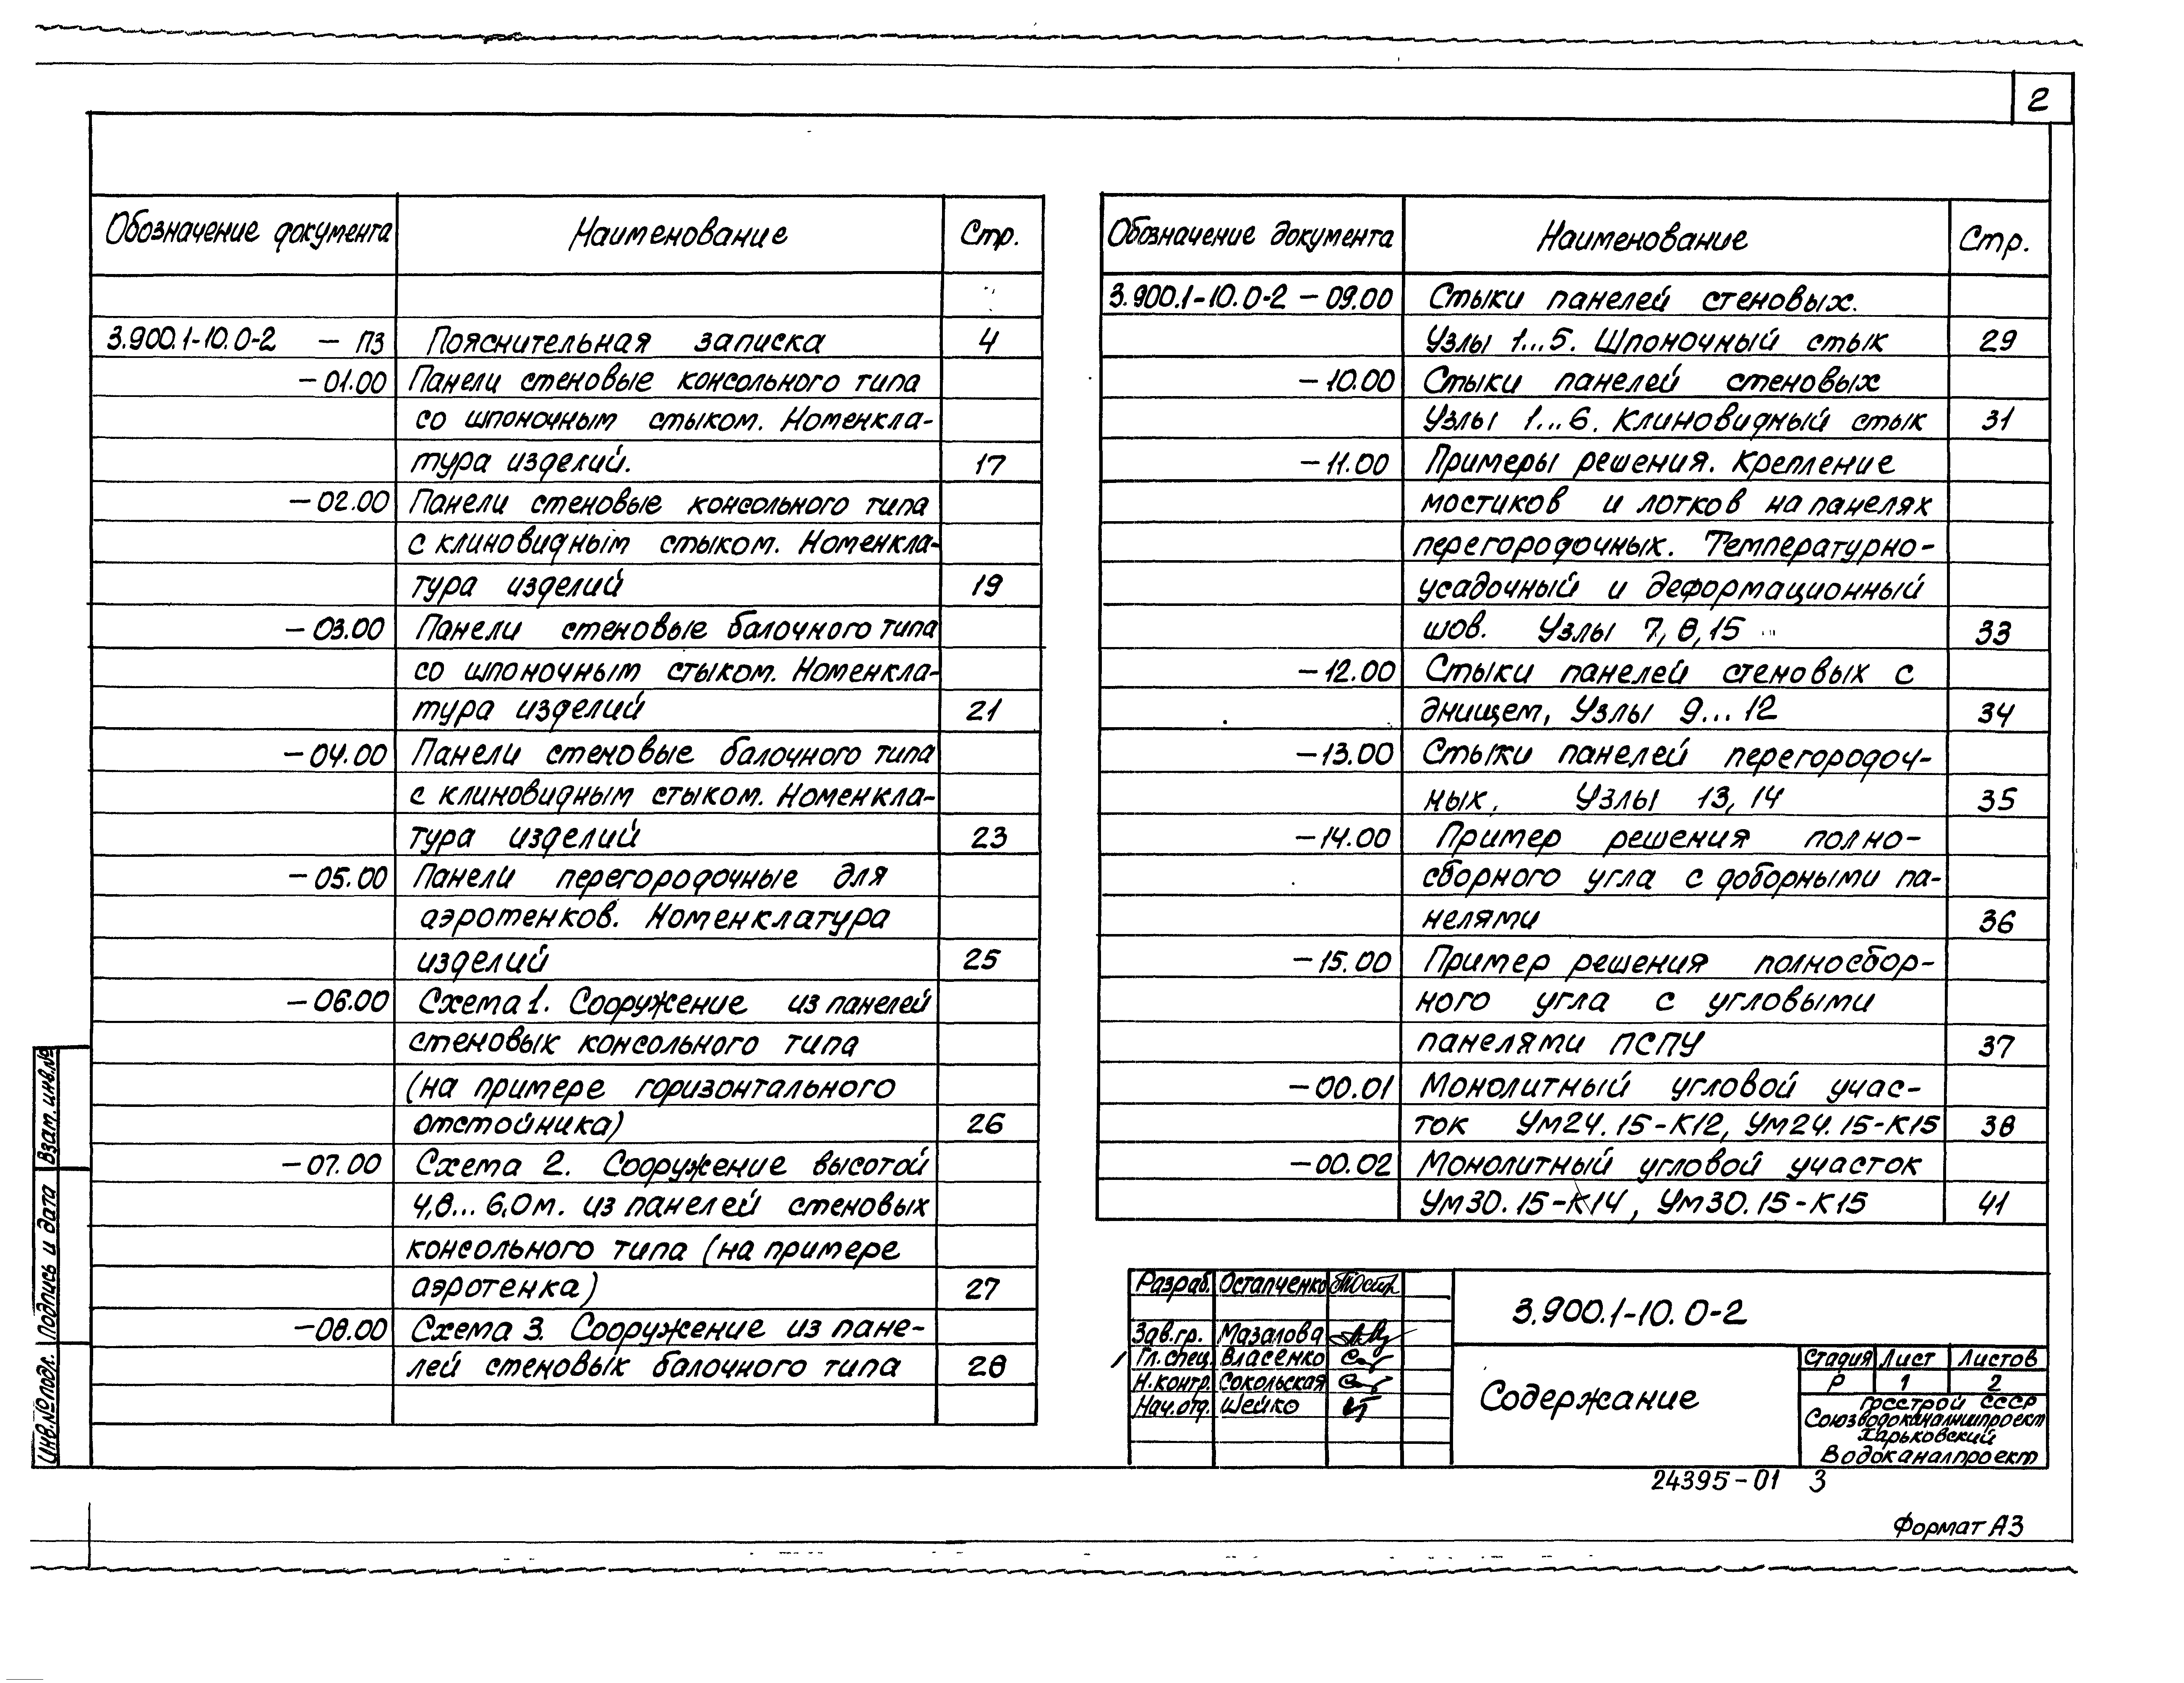 2
Обозначение документа Наименование Стр.
3.900.1-10.0-2 - ПЗ Пояснительная записка 4
-01.00 Панели стеновые консольного типа
со шпоночным стыком. Номенкла-
тура изделий. 17
-02.00 Панели стеновые консольного типа
с клиновидным стыком. Номенкла-
тура изделий 19
-03.00 Панели стеновые балочного типа
со шпоночным стыком. Номенкла-
тура изделий 21
-04.00 Панели стеновые балочного типа
с клиновидным стыком. Номенкла-
тура изделий 23
-05.00 Панели перегородочные для
аэротенков. Номенклатура
изделий 25
-06.00 Схема 1. Сооружение из панелей
стеновых консольного типа
(на примере горизонтального
отстойника) 26
-07.00 Схема 2. Сооружение высотой
4,8...6,0м. из панелей стеновых
консольного типа (на примере
аэротенка) 27
-08.00 Схема 3. Сооружение из пане-
лей стеновых балочного типа 28
Обозначение документа Наименование Стр.
3.900.1-10.0-2 - 09.00 Стыки панелей стеновых.
Узлы 1...5. Шпоночный стык 29
-10.00 Стыки панелей стеновых
Узлы 1...6. Клиновидный стык 31
-11.00 Примеры решения. Крепление
мостиков и лотков на панелях
перегородочных. Температурно-
усадочный и деформационный
шов. Узлы 7, 8, 15 33
-12.00 Стыки панелей стеновых с
днищем, Узлы 9...12 34
-13.00 Стыки панелей перегородоч-
ных. Узлы 13, 14 35
-14.00 Пример решения полно-
сборного угла с доборными па-
нелями 36
-15.00 Пример решения полносбор-
ного угла с угловыми
панелями ПСПУ 37
-00.01 Монолитный угловой учас-
ток Ум24.15-К12, Ум24.15-К15 38
-00.02 Монолитный угловой участок
Ум30.15-К14, Ум30.15-К15 41
Взам. инв.№
Подпись и дата
Инв.№ подл.
Разраб. Остапченко
Зав.гр. Мазалова
Гл. спец. Власенко
Н.контр. Сокольская
Нач.отд. Шейко
3.900.1-10.0-2
Содержание
Стадия Лист Листов
Р 1 2
Госстрой СССР
Союзводоканалниипроект
Харьковский
Водоканалпроект
24395-01 3
Формат А3